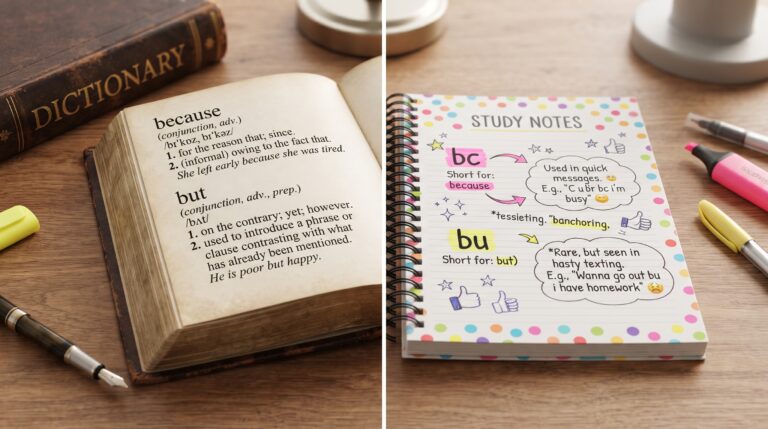 DICTIONARY
because
(conjunction, adv.)
/bɪˈkɒz, bɪˈkəz/
1. for the reason that; since.
2. (informal) owing to the fact that.
She left early because she was tired.
but
(conjunction, adv., prep.)
/bʌt/
1. on the contrary; yet; however.
2. used to introduce a phrase or
clause contrasting with what
has already been mentioned.
He is poor but happy.
STUDY NOTES
bc
Short for:
because
Used in quick
messages.
E.g., "C u
bc i'm
busy"
*tessieting. "banchoring.
bu
Short for: but)
*Rare, but seen in
hasty texting.
E.g., "Wanna go out bu
i have homework"